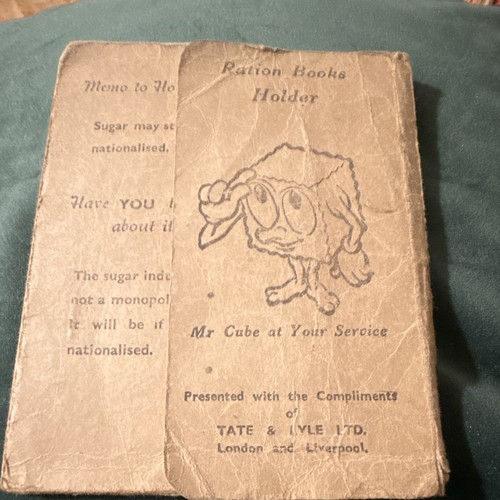 Memo to Ho
Sugar may st
nationalised.
Have YOU
about it
The sugar indu
not a monopol
It will be if
nationalised.
Ration Books
Holder
Mr Cube at Your Service
Presented with the Compliments
of
TATE & LYLE LTD.
London and Liverpool.